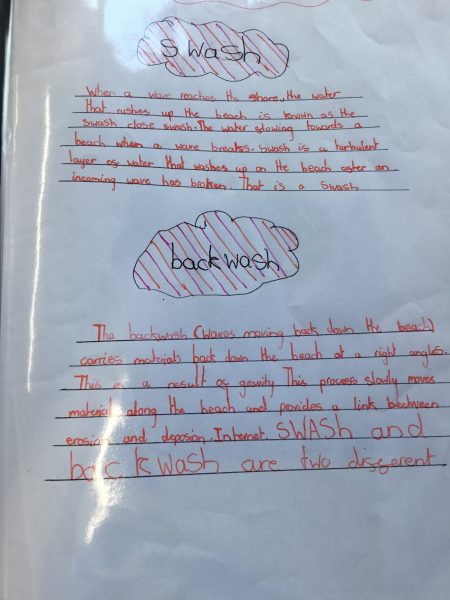 swash
When a wave reaches the shore, the water
that rushes up the beach is known as the
swash close swash. The water flowing towards a
beach when a wave breaks. Swash is a turbulent
layer of water that washes up on the beach after an
incoming wave has broken. That is a swash
backwash
The backwash (waves moving back down the beach)
carries materials back down the beach at a right angles.
This is a result of gravity This process slowly moves
material along the beach and provides a link beetween
erosion and deposion. Internet. SWASh and
backwash are two different